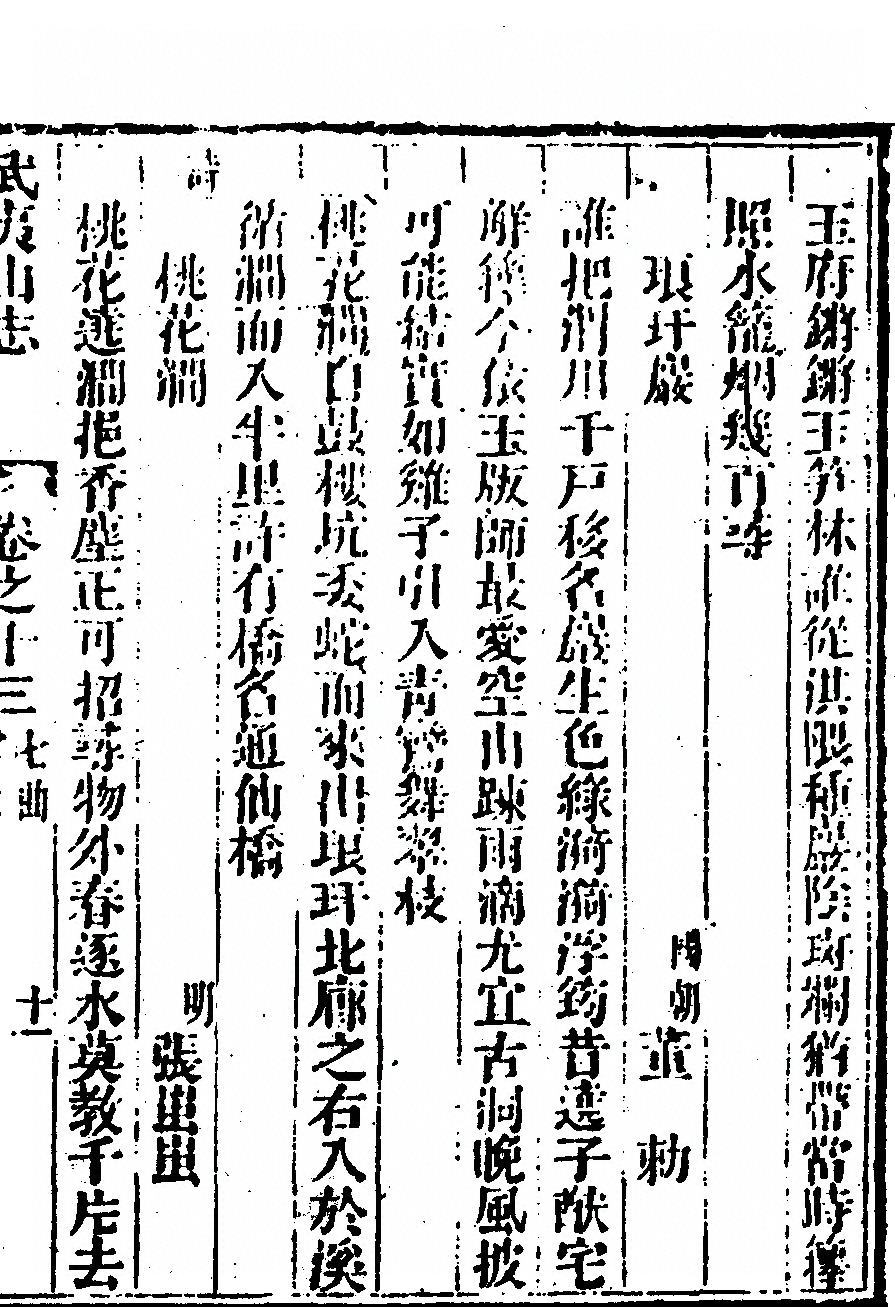 玉府鏘鏘玉笋林誰從洪隈種巖陰斑斕猶帶當時籜
照水籠烟幾百尋
琅玕巖 陽朔 董 勅
誰把渭川千戸移名巖生色綠漪漪浮筠昔遶子猷宅
解籜今依玉版師最愛空山踈雨滴尤宜古洞晚風披
可能結實如雞子引入青鸞舞翠枝
桃花澗自鼓樓坑委蛇而來出琅玕北廊之右入於溪
㳂澗而入半里許有橋名通仙橋
詩
桃花澗 明 張
桃花遶澗挹香塵正可招尋物外春逐水莫教千片去
武夷山志 卷之十三 七曲 十一